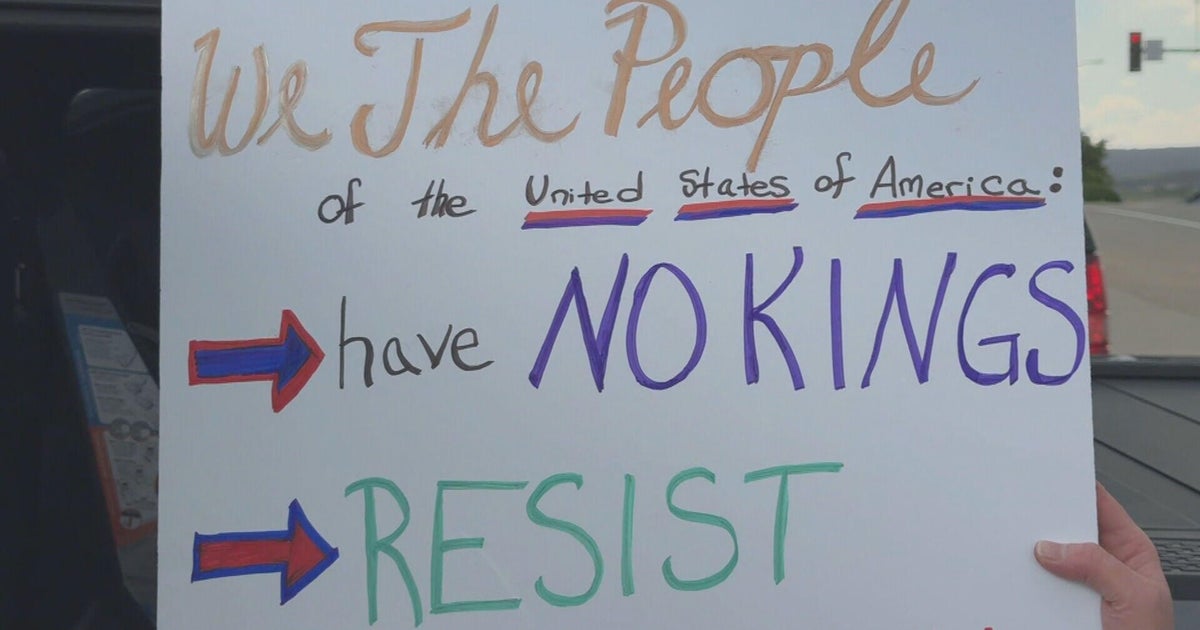 We The People
of the United States of America:
have NO KINGS
RESIST